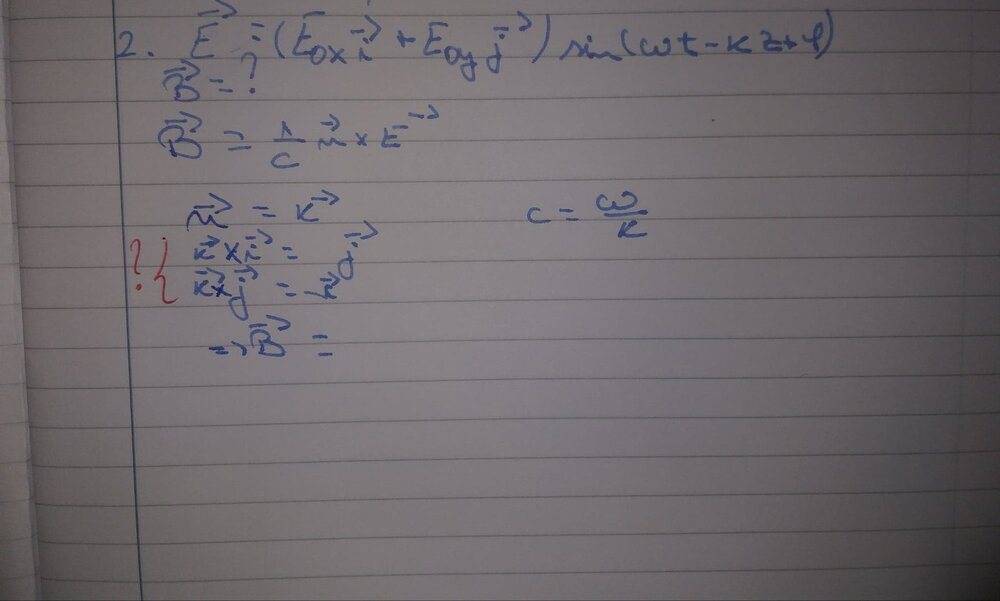 2. E⃗ = (E₀ₓ i⃗ + E₀ᵧ j⃗) sin(ωt - kz + φ)
B⃗ = ?
B⃗ = 1/c n⃗ × E⃗
n⃗ = k⃗ c = ω/k
?{ k⃗ × i⃗ = j⃗
k⃗ × j⃗ =
=> B⃗ =